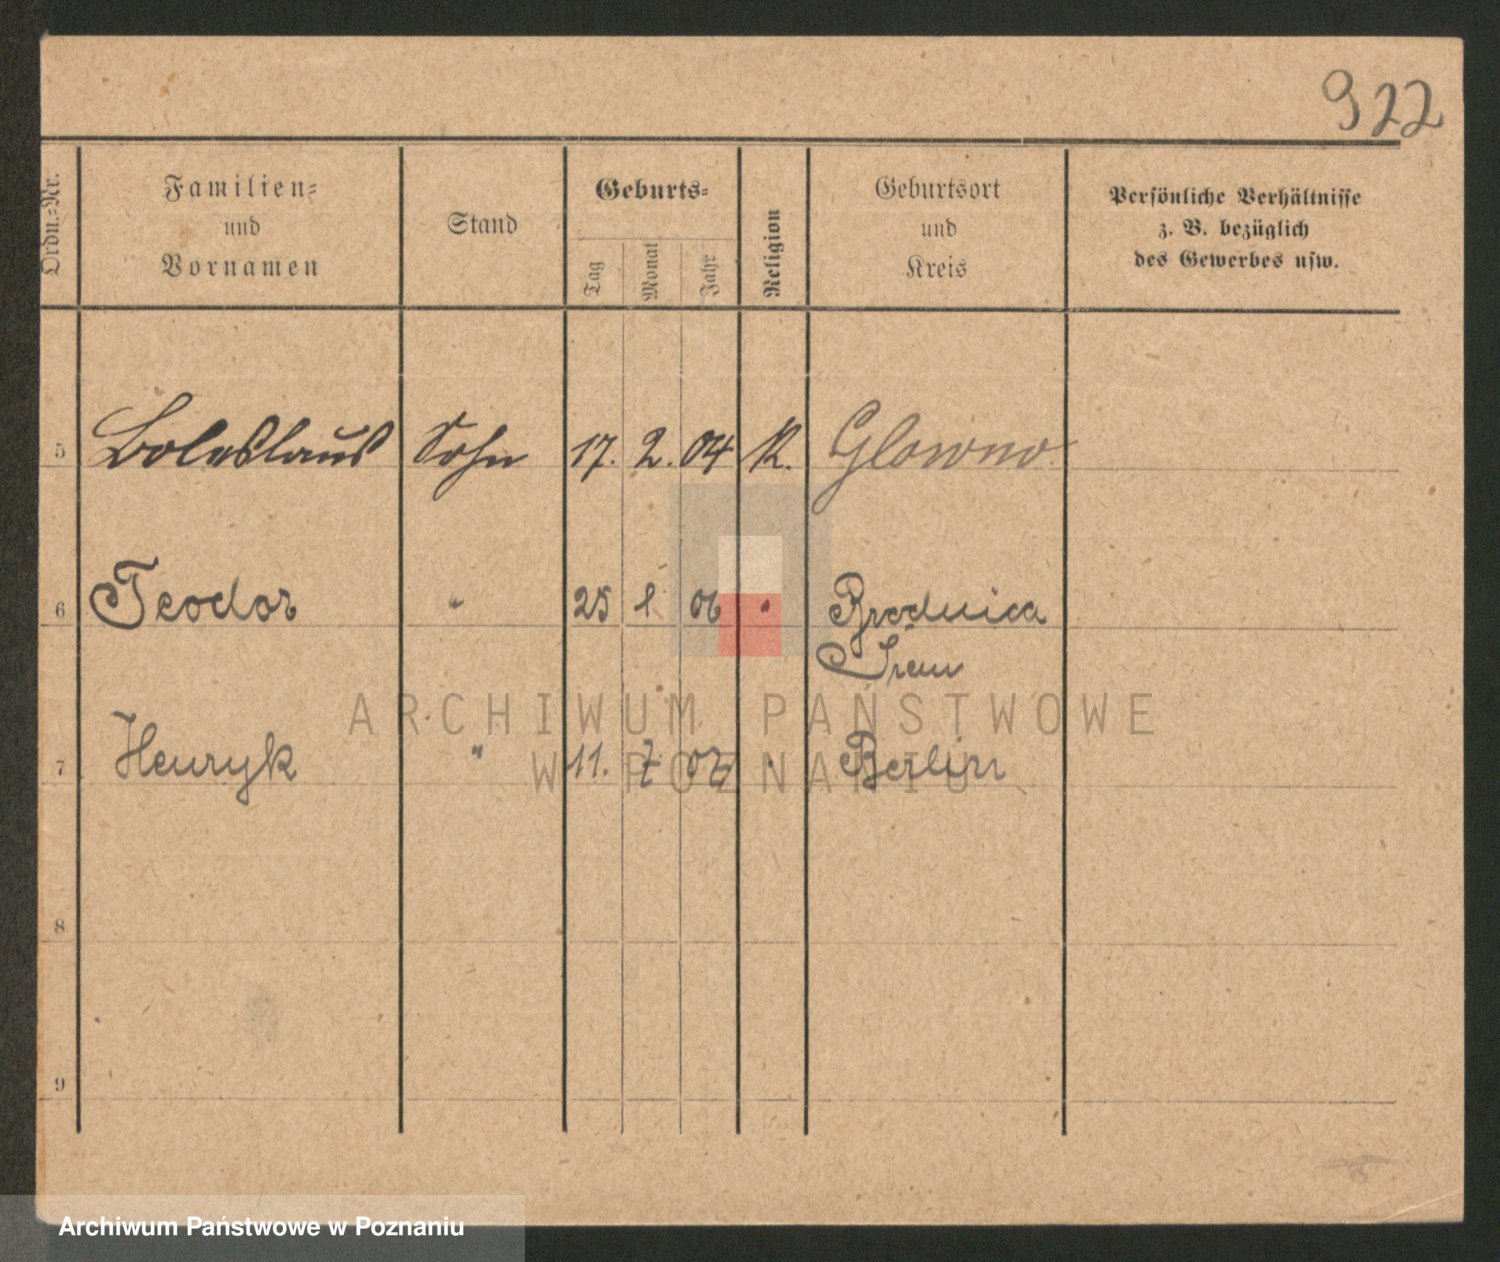 922
Ordn.-Nr.
Familien-
und
Vornamen
Stand
Geburts-
Tag
Monat
Jahr
Religion
Geburtsort
und
Kreis
Persönliche Verhältnisse
z. B. bezüglich
des Gewerbes usw.
5 Boleslaus Sohn 17. 2. 04 K. Glowno.
6 Teodor " 25 1 06 " Brodnica
Śrem
7 Henryk " 11. 7 07 " Berlin
8
9
ARCHIWUM PAŃSTWOWE
W POZNANIU
Archiwum Państwowe w Poznaniu